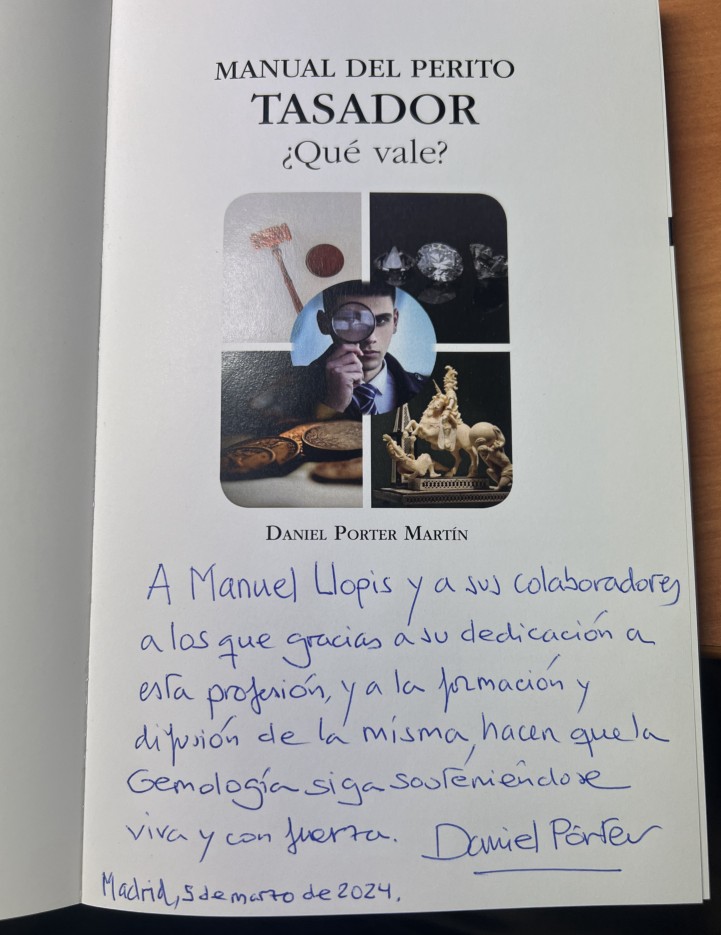 MANUAL DEL PERITO
TASADOR
¿Qué vale?
DANIEL PORTER MARTÍN
A Manuel Llopis y a sus colaboradores
a los que gracias a su dedicación a
esta profesión, y a la formación y
difusión de la misma, hacen que la
Gemología siga sosteniendose
viva y con fuerza. Daniel Porter
Madrid, 5 de marzo de 2024.